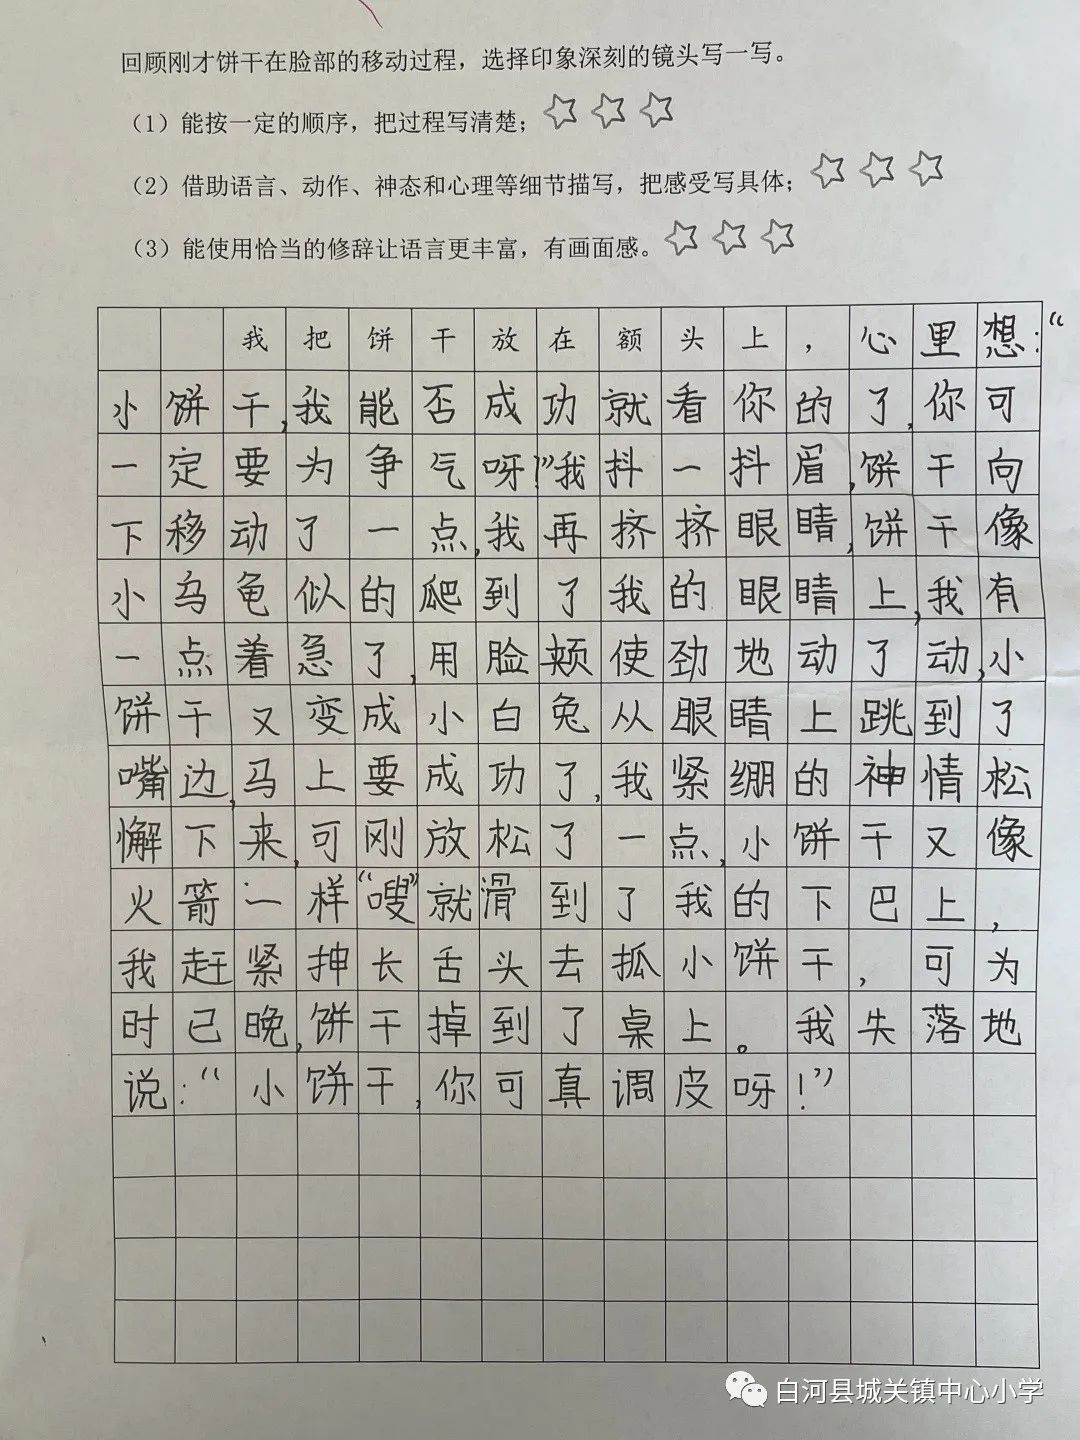 回顾刚才饼干在脸部的移动过程，选择印象深刻的镜头写一写。
（1）能按一定的顺序，把过程写清楚；
（2）借助语言、动作、神态和心理等细节描写，把感受写具体；
（3）能使用恰当的修辞让语言更丰富，有画面感。
我把饼干放在额头上，心里想：“
小饼干，我能否成功就看你的了，你可
一定要为争气呀！”我抖一抖眉，饼干向
下移动了一点，我再挤挤眼睛，饼干像
小乌龟似的爬到了我的眼睛上，我有
一点着急了，用脸颊使劲地动了动，小
饼干又变成小白兔从眼睛上跳到了
嘴边，马上要成功了，我紧绷的神情松
懈下来，可刚放松了一点，小饼干又像
火箭一样“嗖”就滑到了我的下巴上，
我赶紧抻长舌头去抓小饼干，可为
时已晚，饼干掉到了桌上。我失落地
说：“小饼干，你可真调皮呀！”
白河县城关镇中心小学